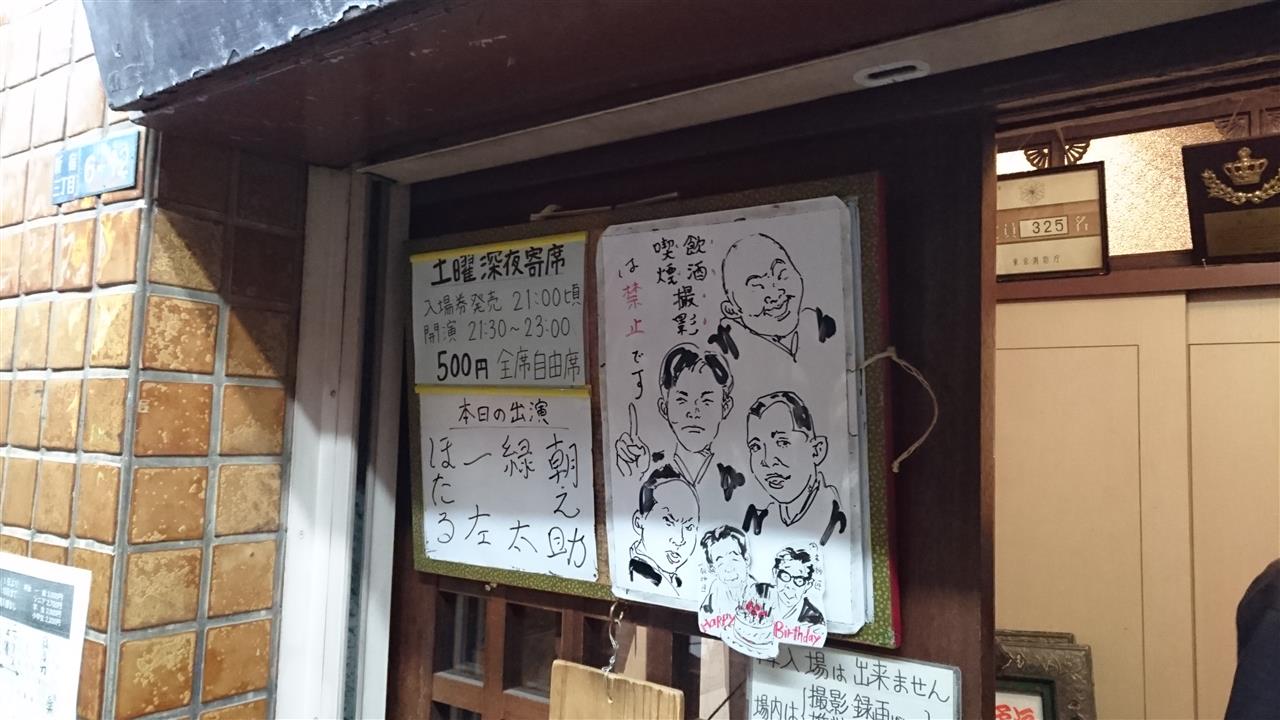 新宿
三丁目
6-12
土曜深夜寄席
入場券発売 21:00頃
開演 21:30～23:00
500円 全席自由席
本日の出演
朝之助
緑太
一左
ほたる
飲酒撮影
喫煙
は禁止です
HAPPY
Birthday
325名
東京消防庁
入場は出来ません
場内は
撮影録画